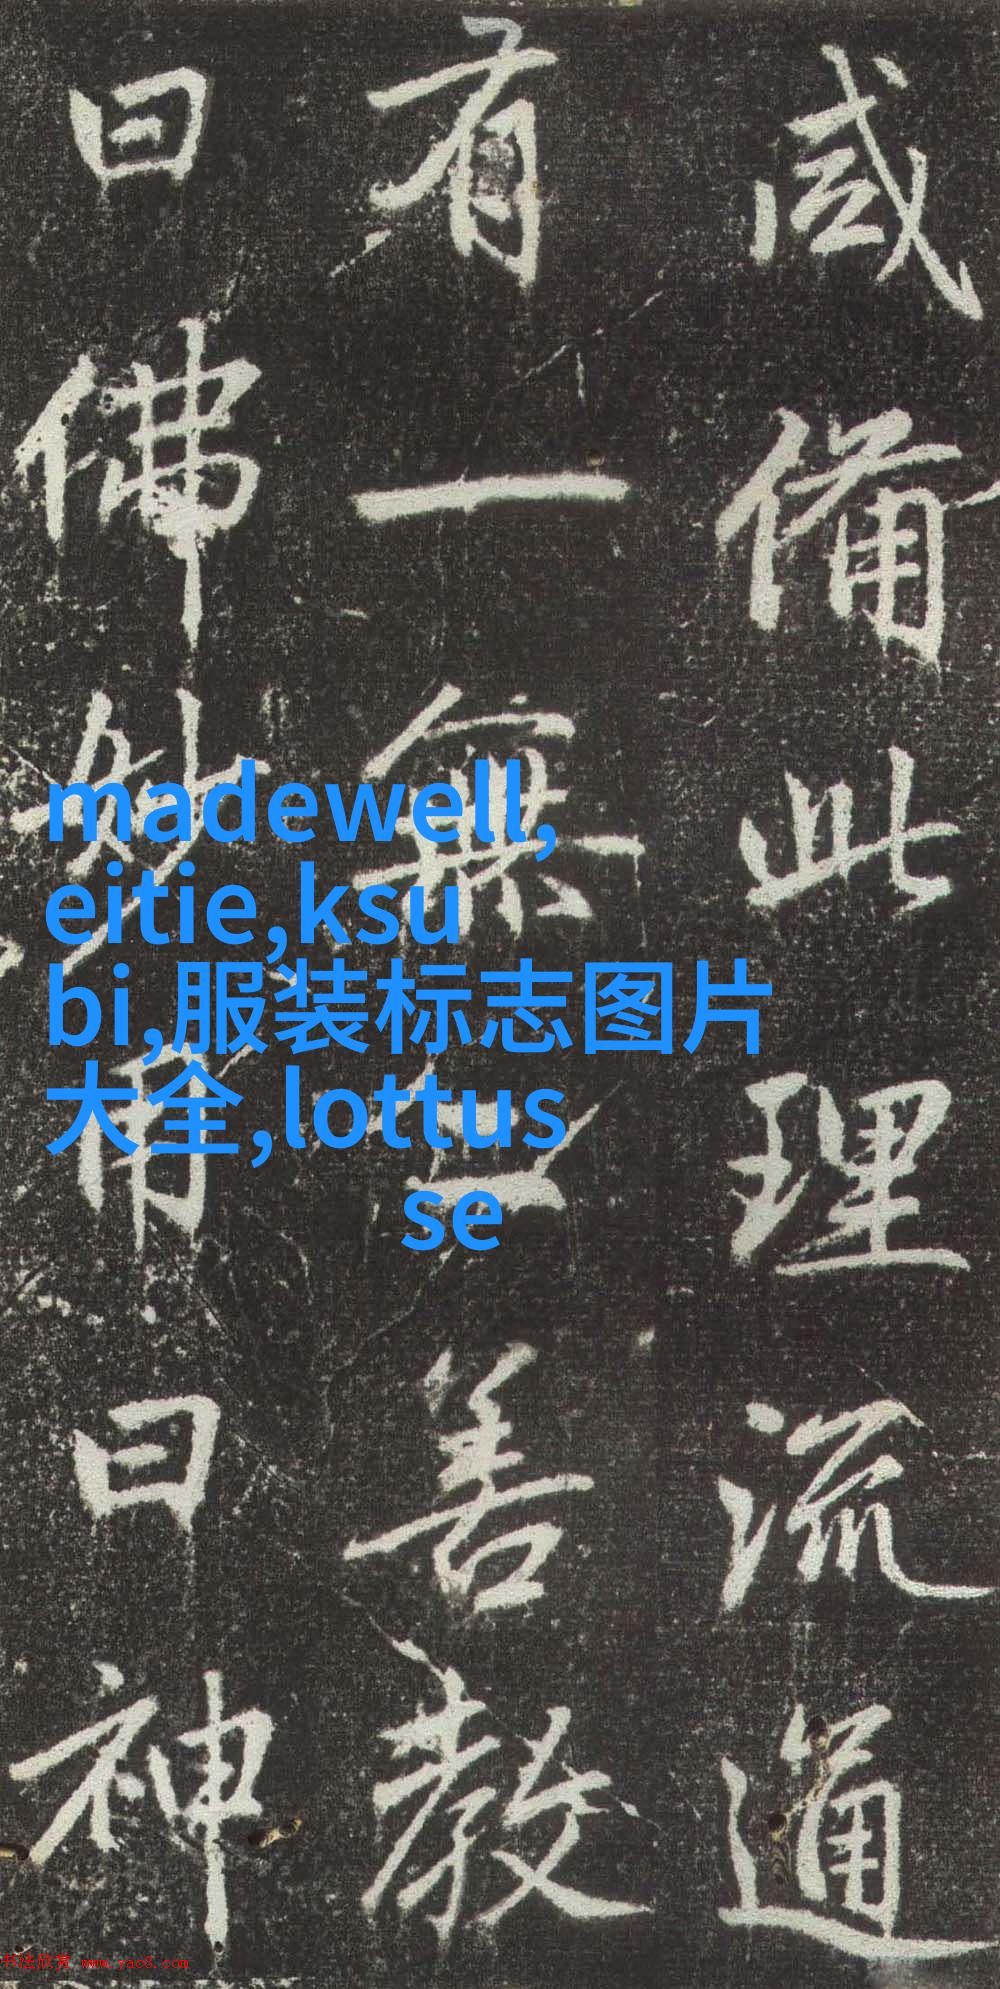 咸備此理流通
有一無二善教
曰佛妙用曰神
madewell,
eitie,ksu
bi,服装标志图片
大全,lottus
se
书法欣赏 www.yac8.com